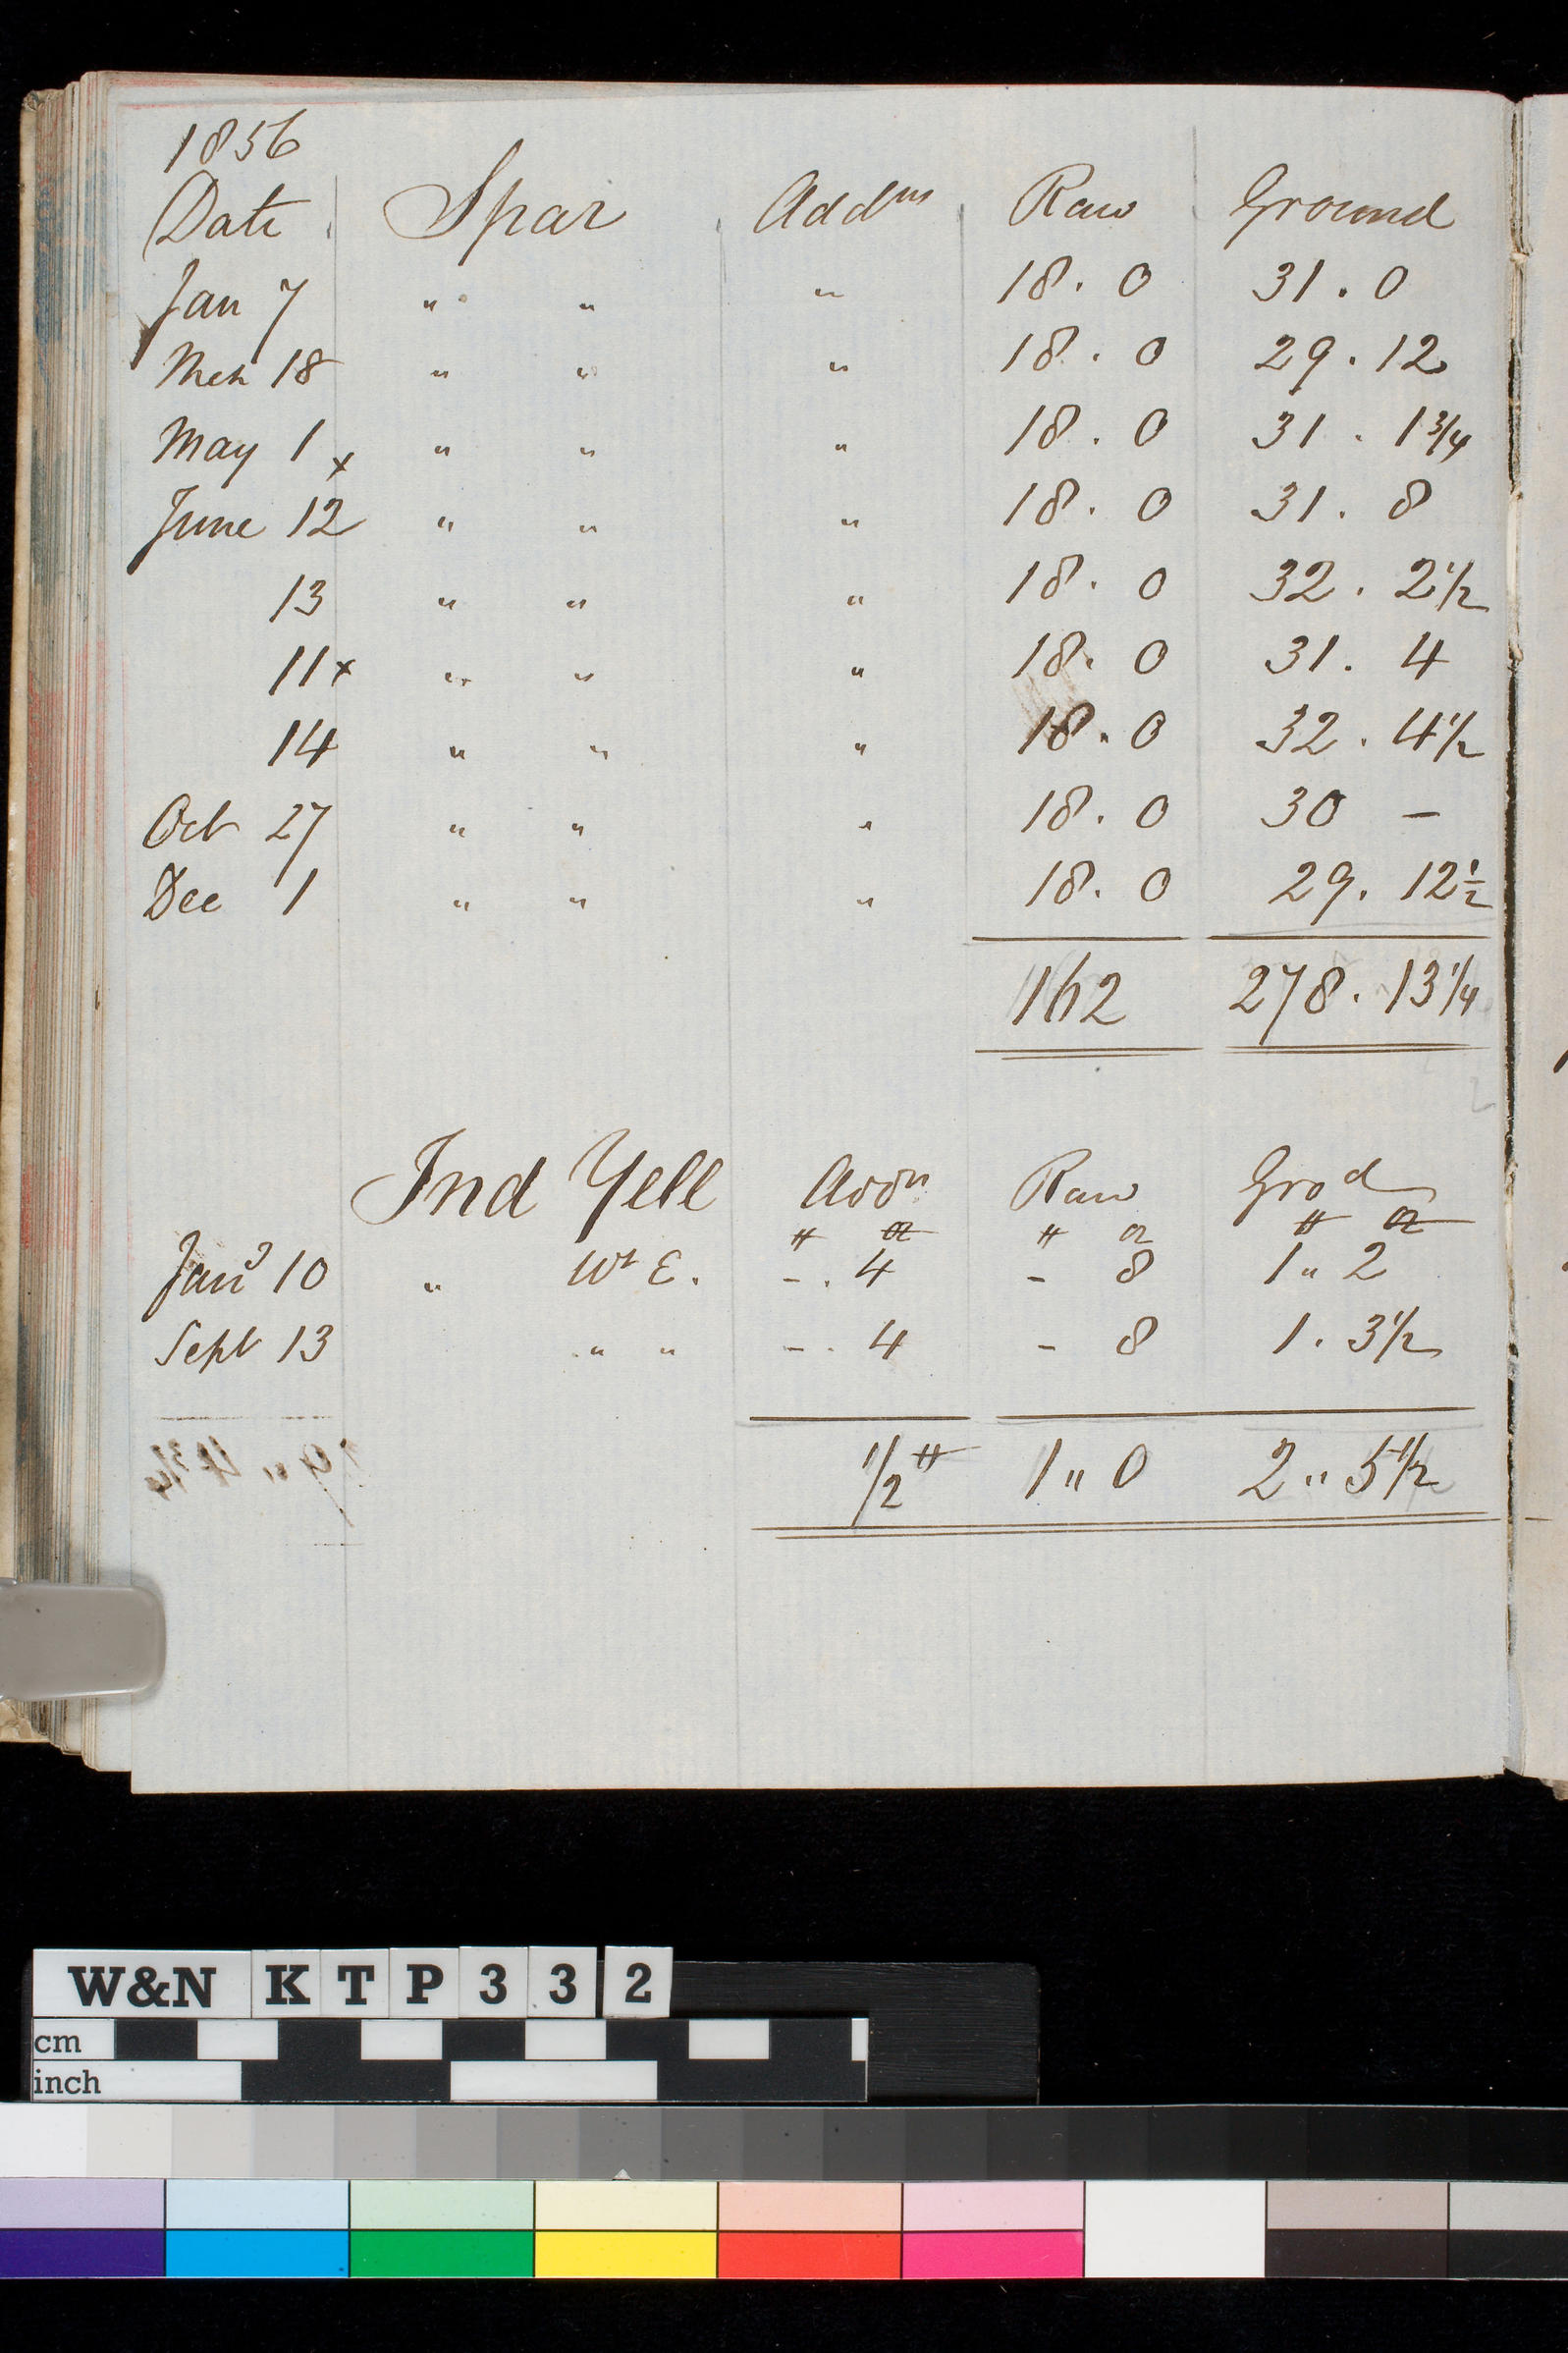 1856
Date Spar Addns Raw Ground
Jan 7 " " " 18 . 0 31 . 0
Mch 18 " " " 18 . 0 29 . 12
May 1 x " " " 18 . 0 31 . 1 3/4
June 12 " " " 18 . 0 31 . 8
13 " " " 18 . 0 32 . 2 1/2
11 x " " " 18 . 0 31 . 4
14 " " " 18 . 0 32 . 4 1/2
Oct 27 " " " 18 . 0 30 -
Dec 1 " " " 18 . 0 29 . 12 1/2
162 278 . 13 1/4
Ind Yell Addn Raw Grod
℔ oz ℔ oz ℔ oz
Jany 10 " Wt E. - . 4 - 8 1 " 2
Sept 13 " " - . 4 - 8 1 . 3 1/2
1/2 ℔ 1 " 0 2 " 5 1/2
W&N KTP332
cm
inch